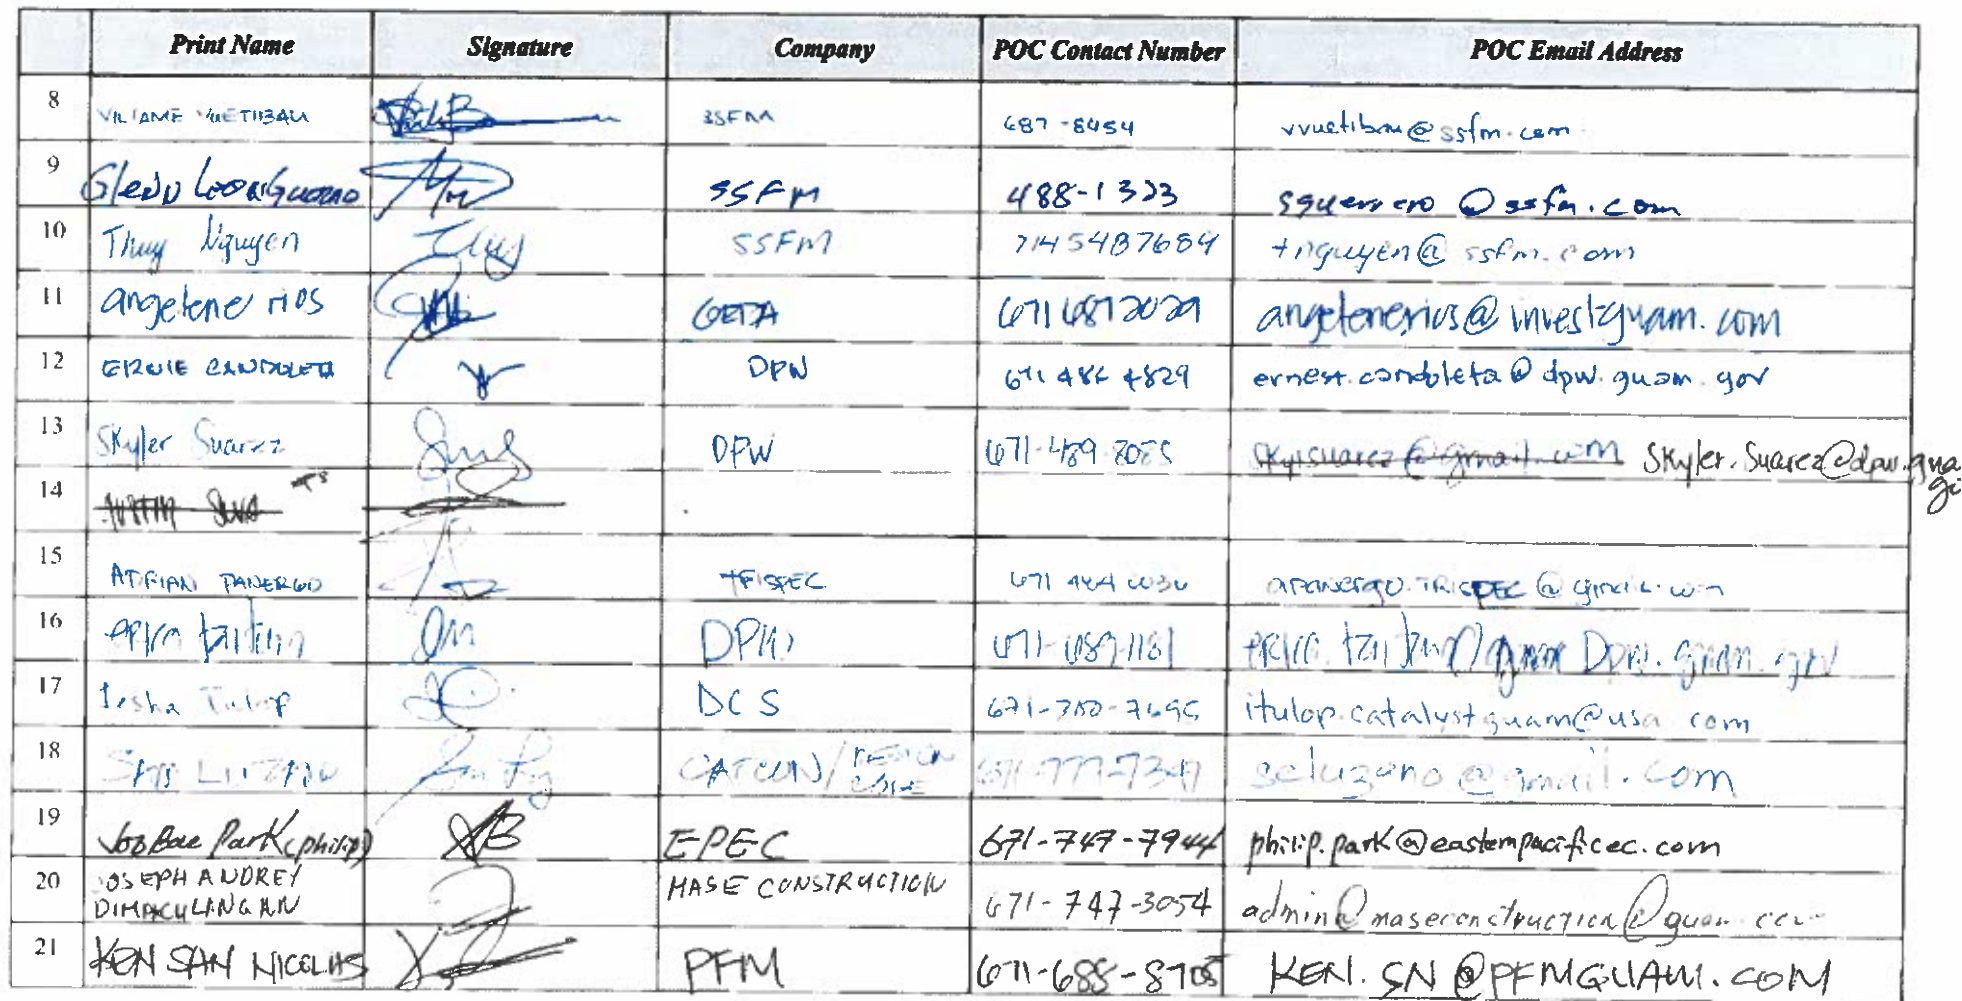 Print Name Signature Company POC Contact Number POC Email Address
8 VILIAME VUETIBAU SSFM 687-8454 vvuetibau@ssfm.com
9 Glenn Leon Guerrero SSFM 488-1323 sguerrero@ssfm.com
10 Thuy Nguyen SSFM 7145487689 tnguyen@ssfm.com
11 angelene rios GEDA 671 687 2029 angelenerios@investguam.com
12 ERNIE CANDOLETA DPW 671 486 4829 ernest.candoleta@dpw.guam.gov
13 Skyler Suarez DPW 671-489-8085 skyisuarez@gmail.com Skyler.Suarez@dpw.gua
14
15 ADRIAN PANERGO TRISPEC 671 apanergo.TRISPEC@gmail.com
16 DPW Dpw.guam.gov
17 Iesha Tulop DCS itulop.catalystguam@usa.com
18 CATCON/ DESIGN 671-777-7347 scluzano@gmail.com
19 Joo Bae Park (philip) EPEC 671-747-7944 philip.park@easternpacificec.com
20 JOSEPH ANDREY MASE CONSTRUCTION 671-747-3054 admin@maseconstruction@guam.com
DIMACULANGAN
21 KEN SAN NICOLAS PFM 671-688-8705 KEN.SN@PFMGUAM.COM